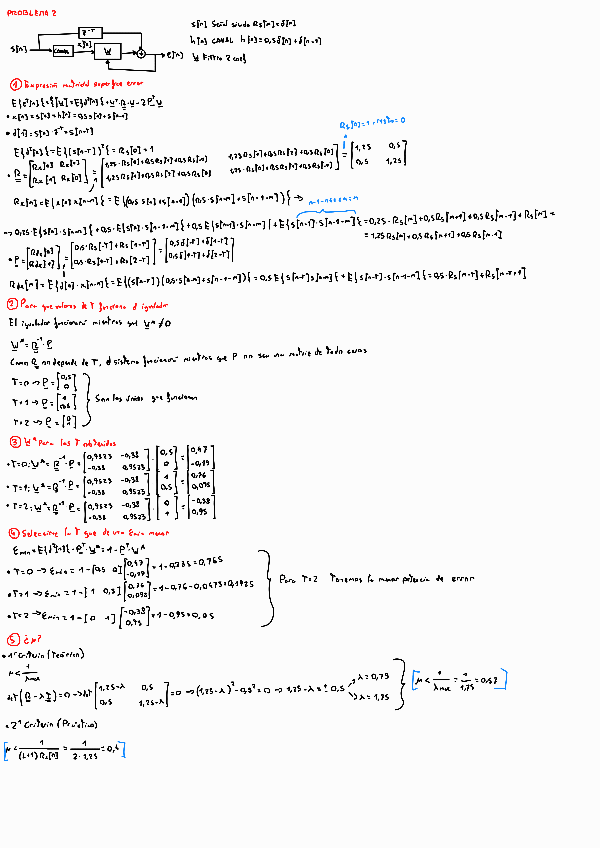 PROBLEMA 2
z^-T
s[n] Señal siendo Rs[n]=δ[n]
s[n] CANAL x[n] W e[n]
h[n] CANAL h[n]=0,5δ[n]+δ[n-1]
W Filtro 2 coef
① Expresión matricial superficie error
E{e²[n]}=ξ[W]=E{d²[n]}+W^T·R·W-2P^T W
• x[n]=s[n]*h[n]=0,5s[n]+s[n-1]
• d[n]=s[n]·z^-T=s[n-T]
E{d²[n]}=E{(s[n-T])²}=Rs[0]=1
Rs[n]=1 → n=0
• R=[Rx[0] Rx[1]; Rx[1] Rx[0]]=[1,25·Rs[0]+0,5Rs[1]+0,5Rs[-1] 1,25Rs[1]+0,5Rs[2]+0,5Rs[0]; 1,25Rs[1]+0,5Rs[2]+0,5Rs[0] 1,25·Rs[0]+0,5Rs[1]+0,5Rs[-1]]=[1,25 0,5; 0,5 1,25]
Rx[m]=E{x[n]x[n-m]}=E{(0,5·s[n]+s[n-1])(0,5·s[n-m]+s[n-1-m])} →
→ 0,25·E{s[n]·s[n-m]}+0,5·E{s[n]·s[n-1-m]}+0,5E{s[n-1]·s[n-m]}+E{s[n-1]·s[n-1-m]}=0,25·Rs[m]+0,5Rs[m+1]+0,5Rs[m-1]+Rs[m]=
=1,25Rs[m]+0,5Rs[m+1]+0,5Rs[m-1]
• P=[Rdx[0]; Rdx[1]]=[0,5·Rs[-T]+Rs[1-T]; 0,5·Rs[1-T]+Rs[2-T]]=[0,5δ[-T]+δ[1-T]; 0,5δ[1-T]+δ[2-T]]
Rdx[m]=E{d[n]·x[n-m]}=E{(s[n-T])(0,5·s[n-m]+s[n-1-m])}=0,5E{s[n-T]s[n-m]}+E{s[n-T]·s[n-1-m]}=0,5·Rs[m-T]+Rs[m-T+1]
② Para que valores de T funciona el igualador
El igualador funcionará mientras que W*≠0
W*=R^-1·P
Como R no depende de T, el sistema funcionará mientras que P no sea una matriz de todo ceros
T=0 → P=[0,5; 0]
T=1 → P=[1; 0,5] Son los únicos que funcionan
T=2 → P=[0; 1]
③ W* para los T obtenidos
• T=0: W*=R^-1·P=[0,9523 -0,38; -0,38 0,9523]·[0,5; 0]=[0,47; -0,19]
• T=1: W*=R^-1·P=[0,9523 -0,38; -0,38 0,9523]·[1; 0,5]=[0,76; 0,095]
• T=2: W*=R^-1·P=[0,9523 -0,38; -0,38 0,9523]·[0; 1]=[-0,38; 0,95]
④ Seleccione la T que de una ξmin menor
ξmin=E{d²[n]}-P^T·W*=1-P^T·W*
• T=0 → ξmin=1-[0,5 0][0,47; -0,19]=1-0,235=0,765
• T=1 → ξmin=1-[1 0,5][0,76; 0,095]=1-0,76-0,0475=0,1925
Para T=2 Tenemos la menor potencia de error
• T=2 → ξmin=1-[0 1][-0,38; 0,95]=1-0,95=0,05
⑤ ¿μ?
• 1º Criterio (Teórico)
μ<1/λmax
det(R-λI)=0 → det[1,25-λ 0,5; 0,5 1,25-λ]=0 → (1,25-λ)²-0,5²=0 → 1,25-λ=±0,5 λ=0,75 λ=1,75 [μ<1/λmax=1/1,75=0,57]
• 2º Criterio (Práctico)
[μ<1/((L+1)Rx[0])=1/(2·1,25)=0,4]